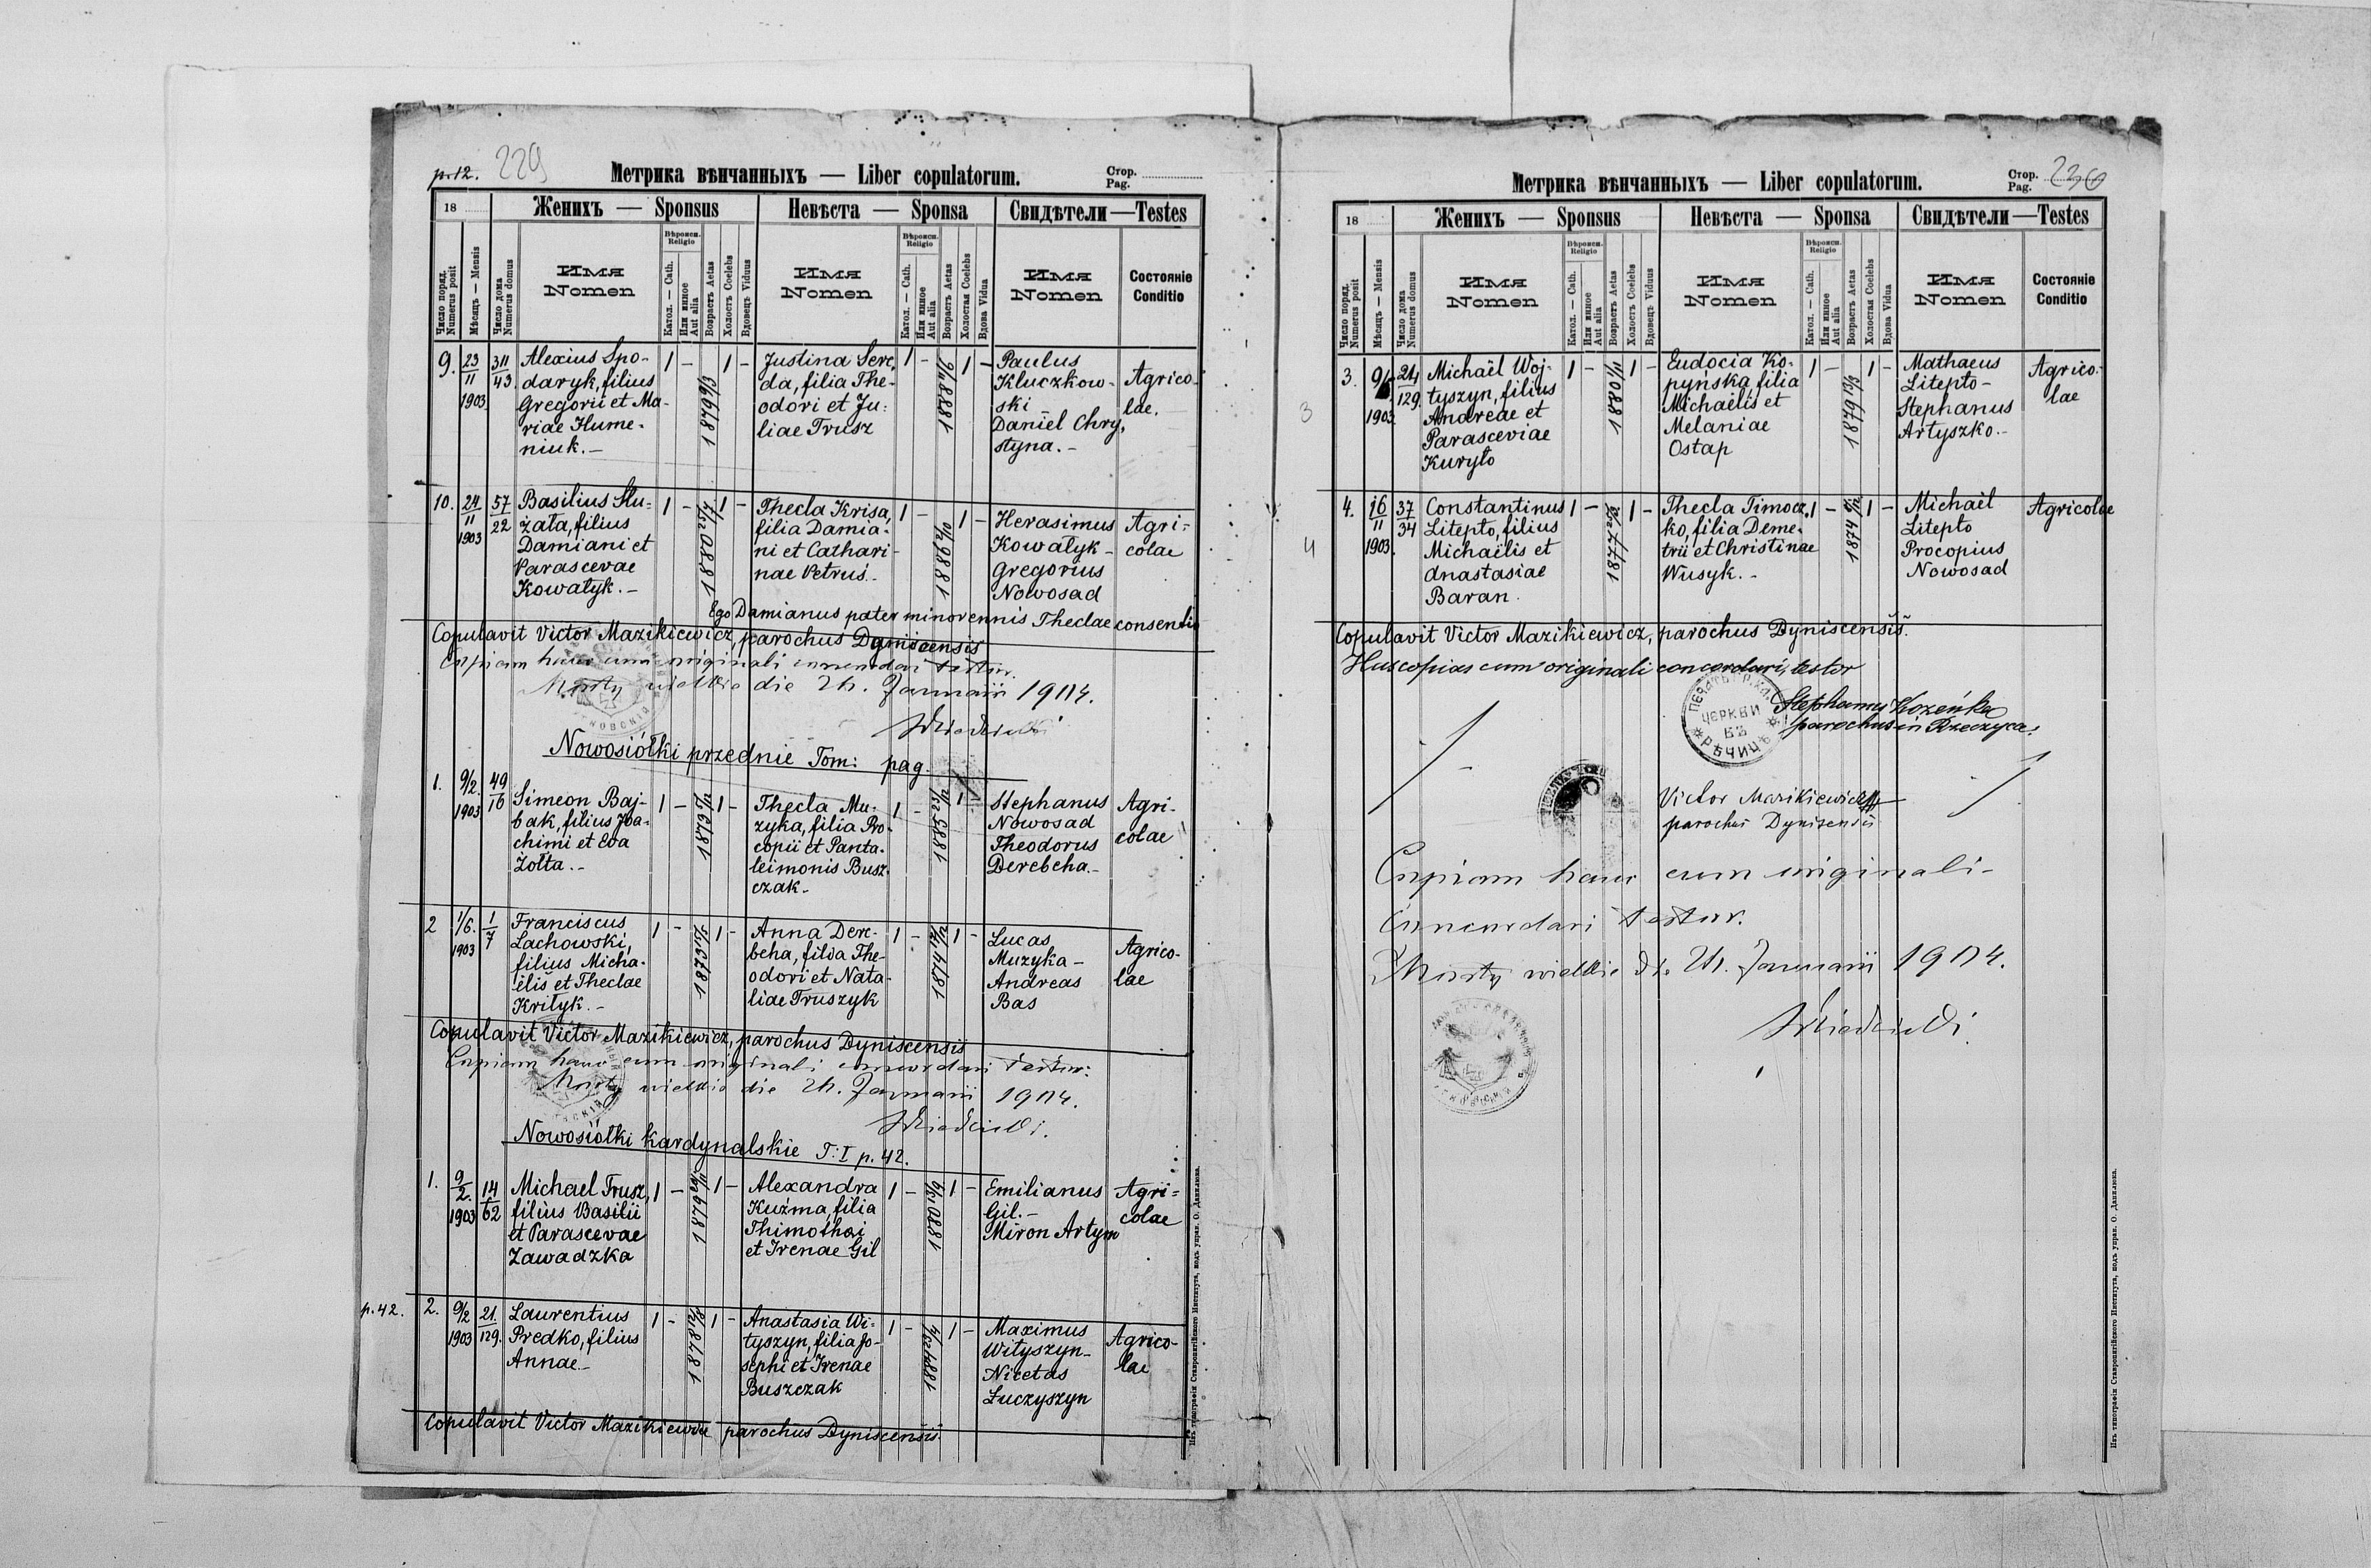 p. 12. 229
Метрика вѣнчанныхъ — Liber copulatorum.
Стор.
Pag.
18
Женихъ — Sponsus
Невѣста — Sponsa
Свидѣтели — Testes
Число поряд.
Numerus posit
Мѣсяцъ — Mensis
Число дома
Numerus domus
Имя
Nomen
Вѣроисп.
Religio
Катол. — Cath.
Или инное
Aut alia
Возрастъ Aetas
Холостъ Coelebs
Вдовецъ Viduus
Имя
Nomen
Вѣроисп.
Religio
Катол. — Cath.
Или инное
Aut alia
Возрастъ Aetas
Холостая Coelebs
Вдова Vidua
Имя
Nomen
Состояніе
Conditio
9. 23/11 1903
Alexius Spo-
daryk, filius
Gregorii et Ma-
riae Hume-
niuk. —
1 — 1879 1 —
Justina Sere-
da, filia The-
odori et Ju-
liae Trusz
1 — 1 —
Paulus
Kluczkow-
ski —
Daniel Chry-
styna. —
Agrico-
lae.
10. 24/11 1903 57/22
Basilius Hu-
żała, filius
Damiani et
Parascevae
Kowałyk. —
1 — 1880 1 —
Thecla Krisa,
filia Damia-
ni et Cathari-
nae Petruś.
1 — 1886 1 —
Herasimus
Kowałyk —
Gregorius
Nowosad
Agri-
colae
Ego Damianus pater minorennis Theclae consentio
Copulavit Victor Mazikiewicz, parochus Dyniscensis
Copiam hanc cum originali concordari testor.
Mosty wielkie die Januarii 1904.
Nowosiółki przednie Tom: pag.
1. 9/2. 1903 49/16
Simeon Baj-
bak, filius Joa-
chimi et Eva
Żołta. —
1 — 1 —
Thecla Mu-
zyka, filia Pro-
copii et Panta-
leimonis Busz-
czak —
1 — 1883 1
Stephanus
Nowosad
Theodorus
Derebcha. —
Agri-
colae
2 1/6. 1903 1/7
Franciscus
Lachowski,
filius Micha-
ëlis et Theclae
Kriłyk. —
1 — 1875 1 —
Anna Dere-
bcha, filia The-
odori et Nata-
liae Truszyk
1 — 1874 1 —
Lucas
Muzyka —
Andreas
Bas
Agrico-
lae
Copulavit Victor Mazikiewicz, parochus Dyniscensis
Copiam hanc cum originali concordari testor:
Mosty wielkie die Januarii 1904.
Nowosiółki kardynalskie T: I p. 42.
1. 9/2. 1903 14/62
Michael Trusz,
filius Basilii
et Parascevae
Zawadzka
1 — 1879 1 —
Alexandra
Kuźma, filia
Thimothai
et Irenae Gil
1 — 1880 1 —
Emilianus
Gil. —
Miron Artym
Agri-
colae
p. 42. 2. 9/2 1903 21./129.
Laurentius
Predko, filius
Annae. —
1 — 1878 1 —
Anastasia Wi-
tyszyn, filia Jo-
sephi et Irenae
Buszczak
1 — 1884 1 —
Maximus
Wityszyn —
Nicetas
Łuczyszyn
Agrico-
lae
Copulavit Victor Mazikiewicz parochus Dyniscensis.
Изъ типографіи Ставропигійского Института, подъ управ. О. Данилюка.
Метрика вѣнчанныхъ — Liber copulatorum.
Стор.
Pag. 230
18
Женихъ — Sponsus
Невѣста — Sponsa
Свидѣтели — Testes
Число поряд.
Numerus posit
Мѣсяцъ — Mensis
Число дома
Numerus domus
Имя
Nomen
Вѣроисп.
Religio
Катол. — Cath.
Или инное
Aut alia
Возрастъ Aetas
Холостъ Coelebs
Вдовецъ Viduus
Имя
Nomen
Вѣроисп.
Religio
Катол. — Cath.
Или инное
Aut alia
Возрастъ Aetas
Холостая Coelebs
Вдова Vidua
Имя
Nomen
Состояніе
Conditio
3
3. 1903. 24/129.
Michaël Woj-
tyszyn, filius
Andreae et
Parasceviae
Kuryło
1 — 1880 1 —
Eudocia Ko-
pyńska, filia
Michaëlis et
Melaniae
Ostap
1 — 1879 13/3 1 —
Mathaeus
Litepło —
Stephanus
Artyszko. —
Agrico-
lae
4
4. 16/11 1903. 37/34
Constantinus
Litepło, filius
Michaëlis et
Anastasiae
Baran.
1 — 1877 1 —
Thecla Timocz-
ko, filia Deme-
trii et Christinae
Wusyk. —
1 — 1874 1 —
Michaël
Litepło
Procopius
Nowosad
Agricolae
Copulavit Victor Mazikiewicz, parochus Dyniscensis.
Has copias cum originali concordari, testor
Stephanus Kozeńko
parochus in Rzeczyca.
ЦЕРКВИ
ВЪ
РѢЧИЦѢ
Victor Mazikiewicz
parochus Dyniscensis
Copiam hanc cum originali —
concordari testor.
Mosty wielkie die Januarii 1904.
Изъ типографіи Ставропигійского Института, подъ управ. О. Данилюка.